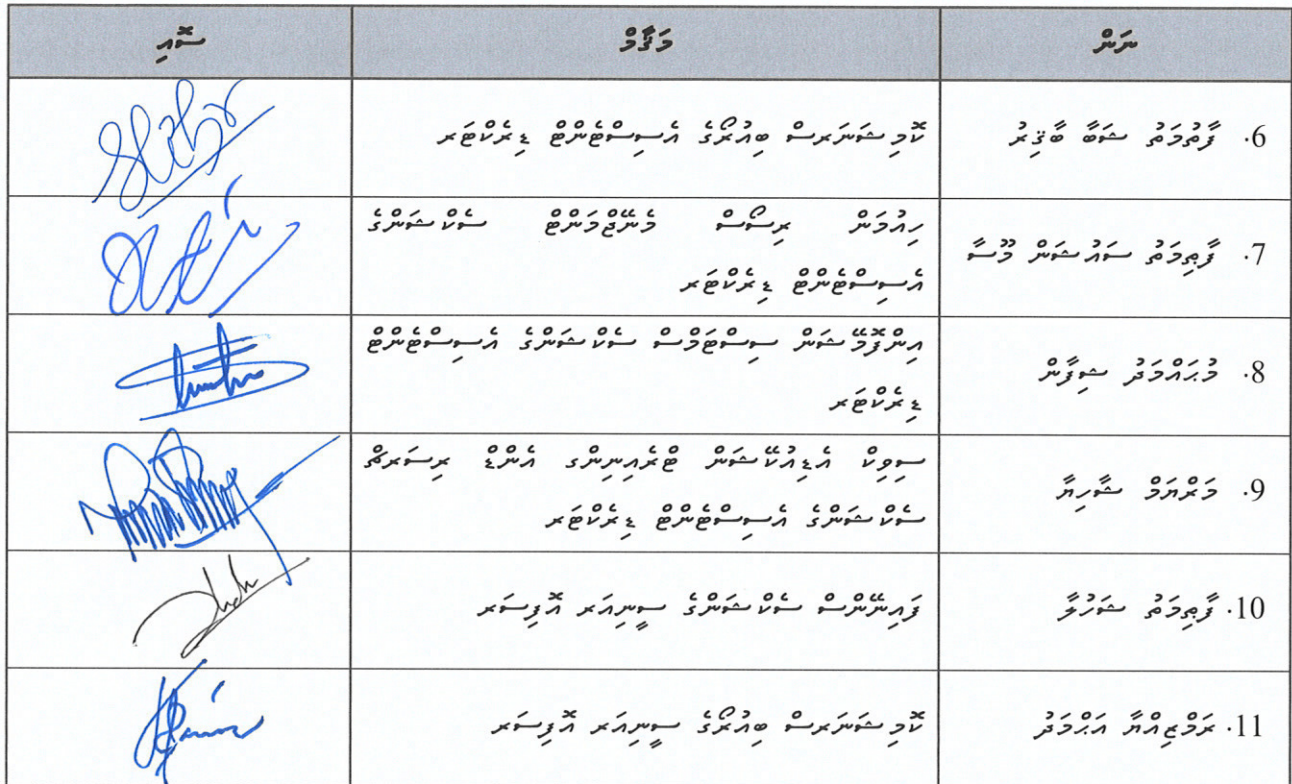 ނަން މަޤާމް ސޮއި
6. ފާތުމަތު ޝަބާ ބާޤިރު ކޮމިޝަނަރސް ބިއުރޯގެ އެސިސްޓެންޓް ޑިރެކްޓަރ
7. ފާޠިމަތު ސައުޝަން މޫސާ ހިއުމަން ރިސޯސް މެނޭޖްމަންޓް ސެކްޝަންގެ
އެސިސްޓެންޓް ޑިރެކްޓަރ
8. މުޙައްމަދު ޝިފާން އިންފޮމޭޝަން ސިސްޓަމްސް ސެކްޝަންގެ އެސިސްޓެންޓް
ޑިރެކްޓަރ
9. މަރްޔަމް ޝާހިޔާ ސިވިކް އެޑިއުކޭޝަން ޓްރެއިނިންގ އެންޑް ރިސަރޗް
ސެކްޝަންގެ އެސިސްޓެންޓް ޑިރެކްޓަރ
10. ފާޠިމަތު ޝަހުލާ ފައިނޭންސް ސެކްޝަންގެ ސީނިއަރ އޮފިސަރ
11. ރަމްޒިއްޔާ އަޙްމަދު ކޮމިޝަނަރސް ބިއުރޯގެ ސީނިއަރ އޮފިސަރ